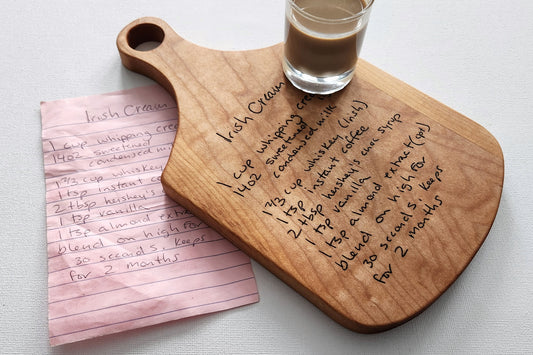 Irish Cream
1 cup whipping cre
14oz sweetened
condensed milk
1 2/3 cup whiskey
1 tsp instant co
2 tbsp heishey's
1 tsp vanilla
1 tsp almond extrac
blend on high for
30 seconds. Keeps
for 2 months
Irish Cream
1 cup whipping cre
14oz sweetened
condensed milk
1 2/3 cup whiskey (Irish)
1 tsp instant coffee
2 tbsp heishey's choc syrup
1 tsp vanilla
1 tsp almond extract
blend on high for
30 seconds. Keeps
for 2 months